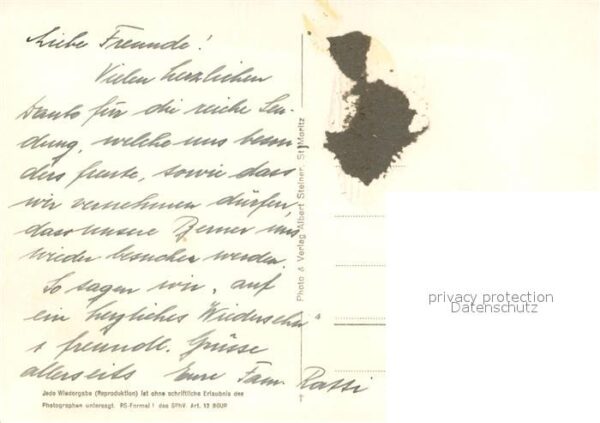 Liebe Freunde!
Vielen herzlichen
Dank für die reiche Sen-
dung, welche uns beson
ders freute, sowie dass
wir vernehmen dürfen,
dass unsere Berner uns
wieder besuchen werden.
So sagen wir „auf
ein herzliches Wiedersehn"
& freundl. Grüsse
allerseits Eure Fam. Ratti
Photo & Verlag Albert Steiner, St. Moritz
Jede Wiedergabe (Reproduktion) ist ohne schriftliche Erlaubnis des
Photographen untersagt. RS-Formel 1 des SPhV. Art. 12 BGUP
privacy protection
Datenschutz